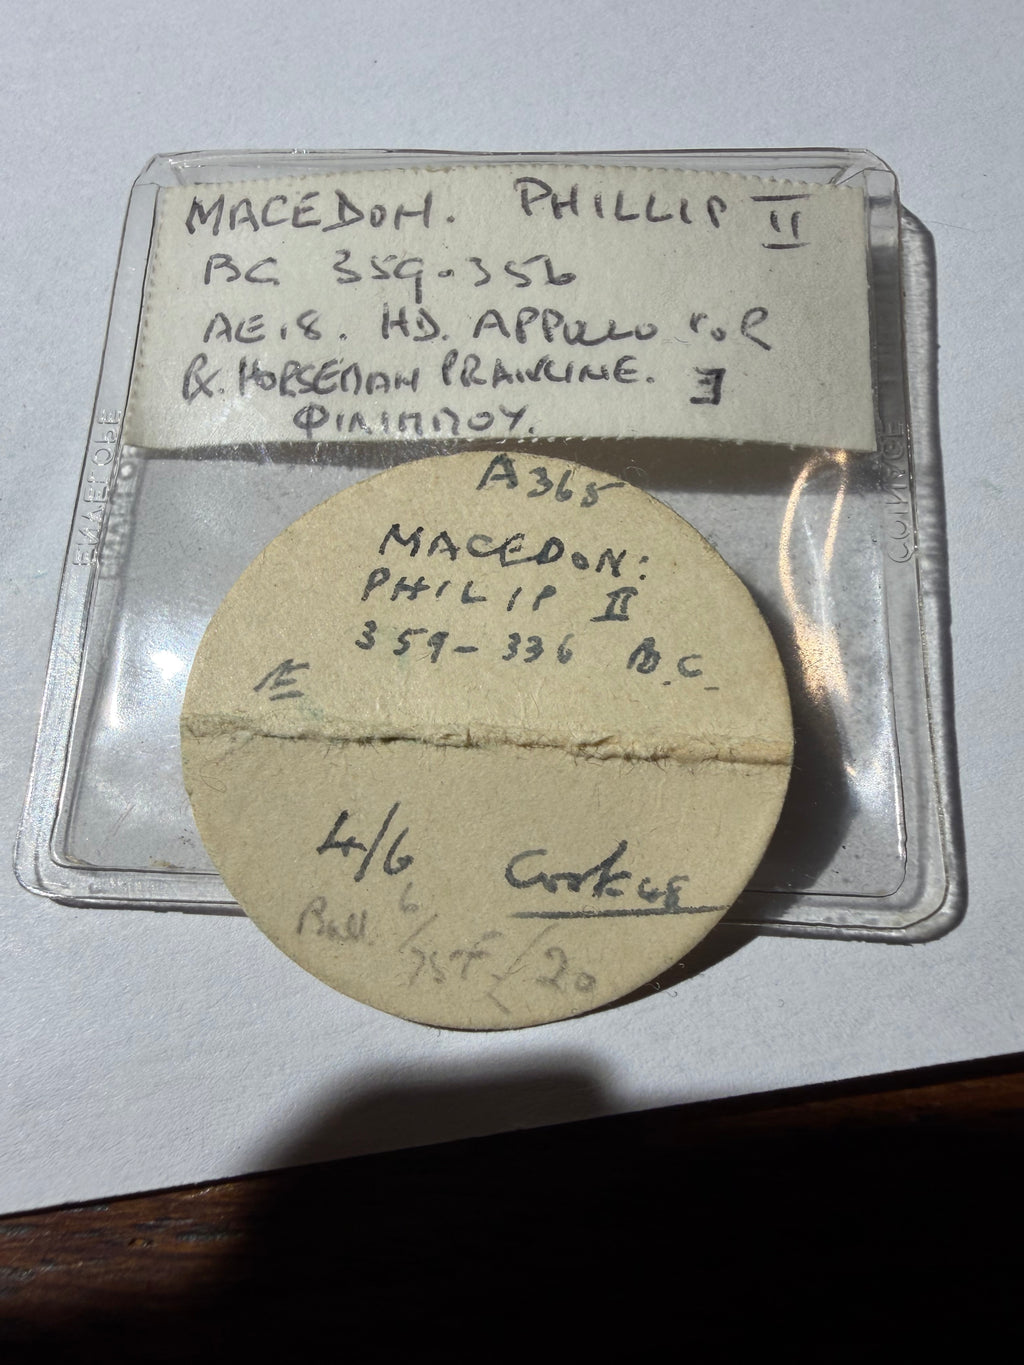 MACEDON. PHILLIP II
BC 359-356
AE.18. HD. APPOLLO to R
Rx. HORSEMAN PRANCING. E
ΦΙΛΙΠΠΟΥ.
ENVELOPE
COINAGE
A365
MACEDON:
PHILIP II
359-336 B.C.
Æ
4/6
Ball 6/
75F/20